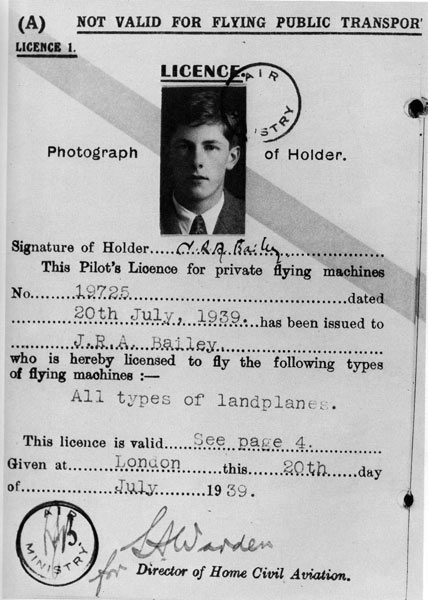 (A) NOT VALID FOR FLYING PUBLIC TRANSPOR
LICENCE 1.
LICENCE.
AIR MINISTRY
Photograph of Holder.
Signature of Holder J.R.A. Bailey.
This Pilot's Licence for private flying machines
No. 19725 dated
20th July, 1939. has been issued to
J.R.A. Bailey.
who is hereby licensed to fly the following types
of flying machines :—
All types of landplanes.
This licence is valid See page 4.
Given at London this 20th day
of July 1939.
AIR MINISTRY.
for
Director of Home Civil Aviation.